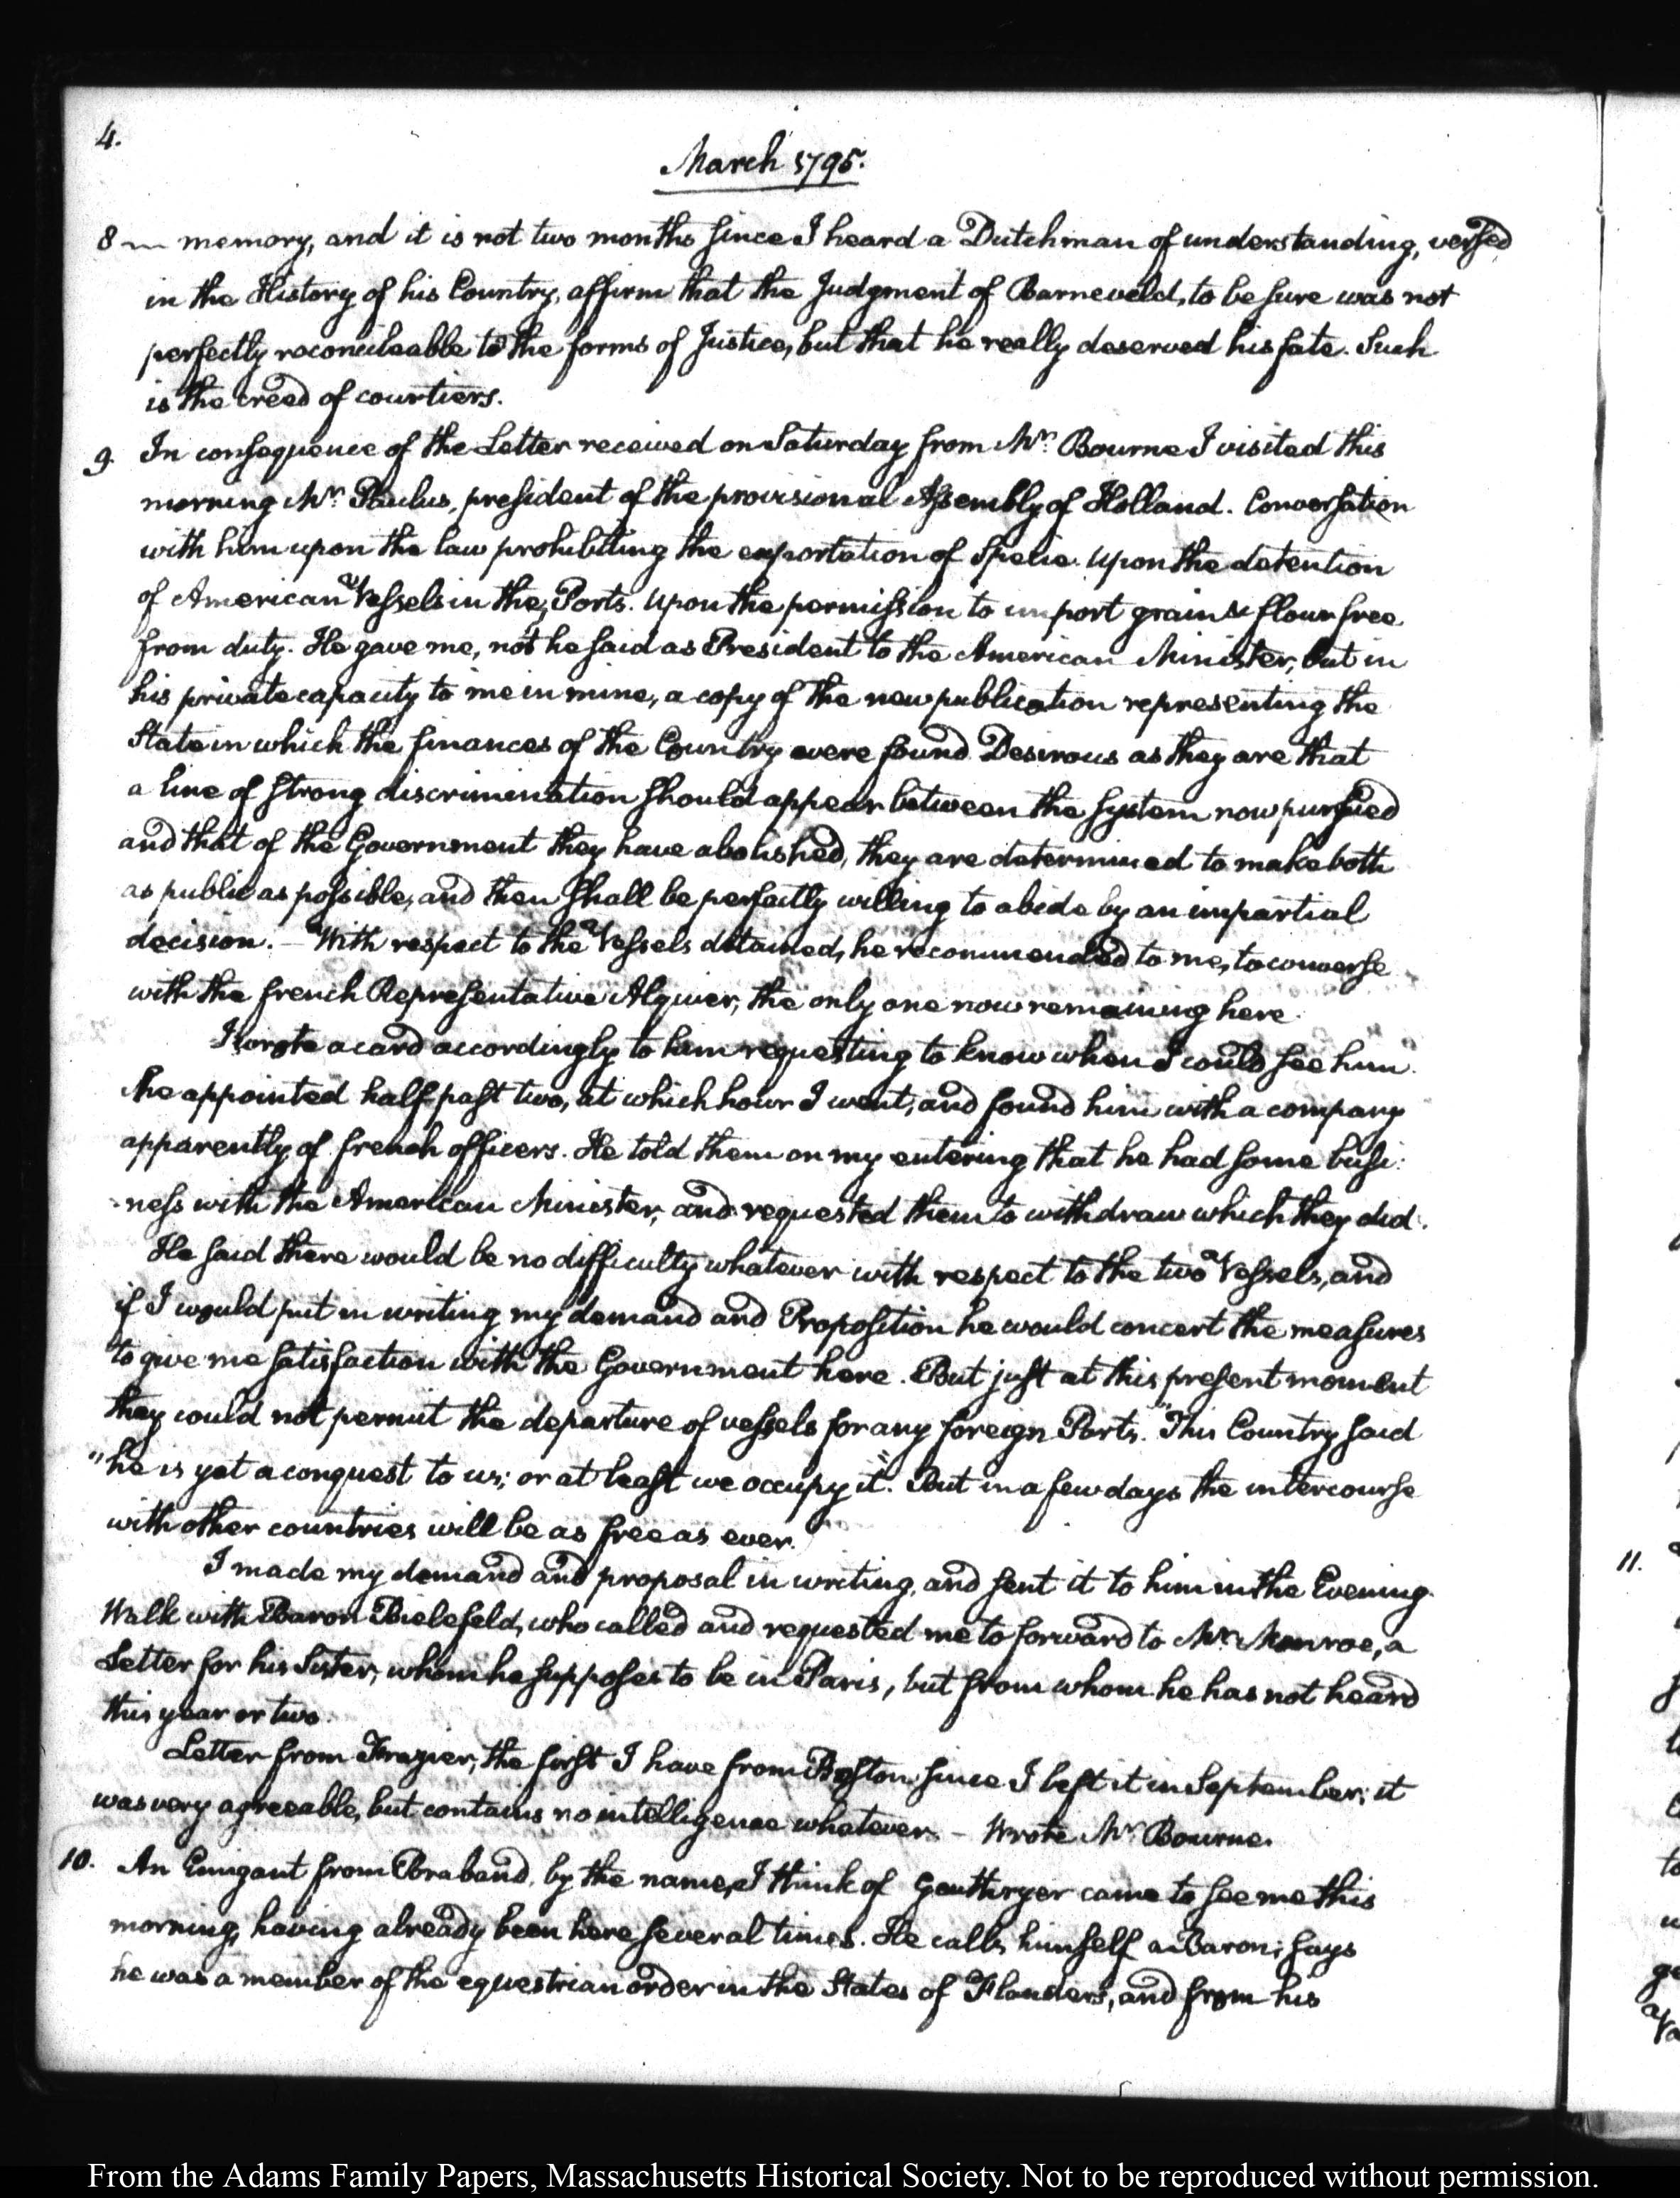 4.
March 1795.
8 — memory, and it is not two months since I heard a Dutchman of understanding, versed
in the History of his Country, affirm that the Judgment of Barneveld, to be sure was not
perfectly reconcileable to the forms of Justice, but that he really deserved his fate. Such
is the creed of courtiers.
9. In consequence of the Letter received on Saturday from Mr. Bourne I visited this
morning Mr. Paulus, president of the provisional Assembly of Holland. Conversation
with him upon the law prohibiting the exportation of Specie. Upon the detention
of American Vessels in the Ports. Upon the permission to import grain & flour free
from duty. He gave me, not he said as President to the American Minister, but in
his private capacity to me in mine, a copy of the new publication representing the
State in which the finances of the Country were found. Desirous as they are that
a line of strong discrimination should appear between the system now pursued
and that of the Government they have abolished, they are determined to make both
as public as possible, and then shall be perfectly willing to abide by an impartial
decision. — With respect to the Vessels detained, he recommended to me, to converse
with the french Representative Alquier, the only one now remaining here.
I wrote a card accordingly to him requesting to know when I could see him.
He appointed half past two, at which hour I went, and found him with a company
apparently of french officers. He told them on my entering that he had some busi:
:ness with the American Minister, and requested them to withdraw which they did.
He said there would be no difficulty whatever with respect to the two Vessels, and
if I would put in writing my demand and Proposition he would concert the measures
to give me satisfaction with the Government here. But just at this present moment
they could not permit the departure of vessels for any foreign Ports. "This Country said
"he is yet a conquest to us; or at least we occupy it." But in a few days the intercourse
with other countries will be as free as ever.
I made my demand and proposal in writing, and sent it to him in the Evening.
Walk with Baron Bielefeld, who called and requested me to forward to Mr. Monroe, a
Letter for his Sister, whom he supposes to be in Paris, but from whom he has not heard
this year or two.
Letter from Frazier, the first I have from Boston since I left it in September; it
was very agreeable, but contains no intelligence whatever. — Wrote Mr. Bourne.
10. An Emigant from Braband, by the name, I think of came to see me this
morning, having already been here several times. He calls himself a Baron; says
he was a member of the equestrian order in the States of Flanders, and from his
11.
From the Adams Family Papers, Massachusetts Historical Society. Not to be reproduced without permission.